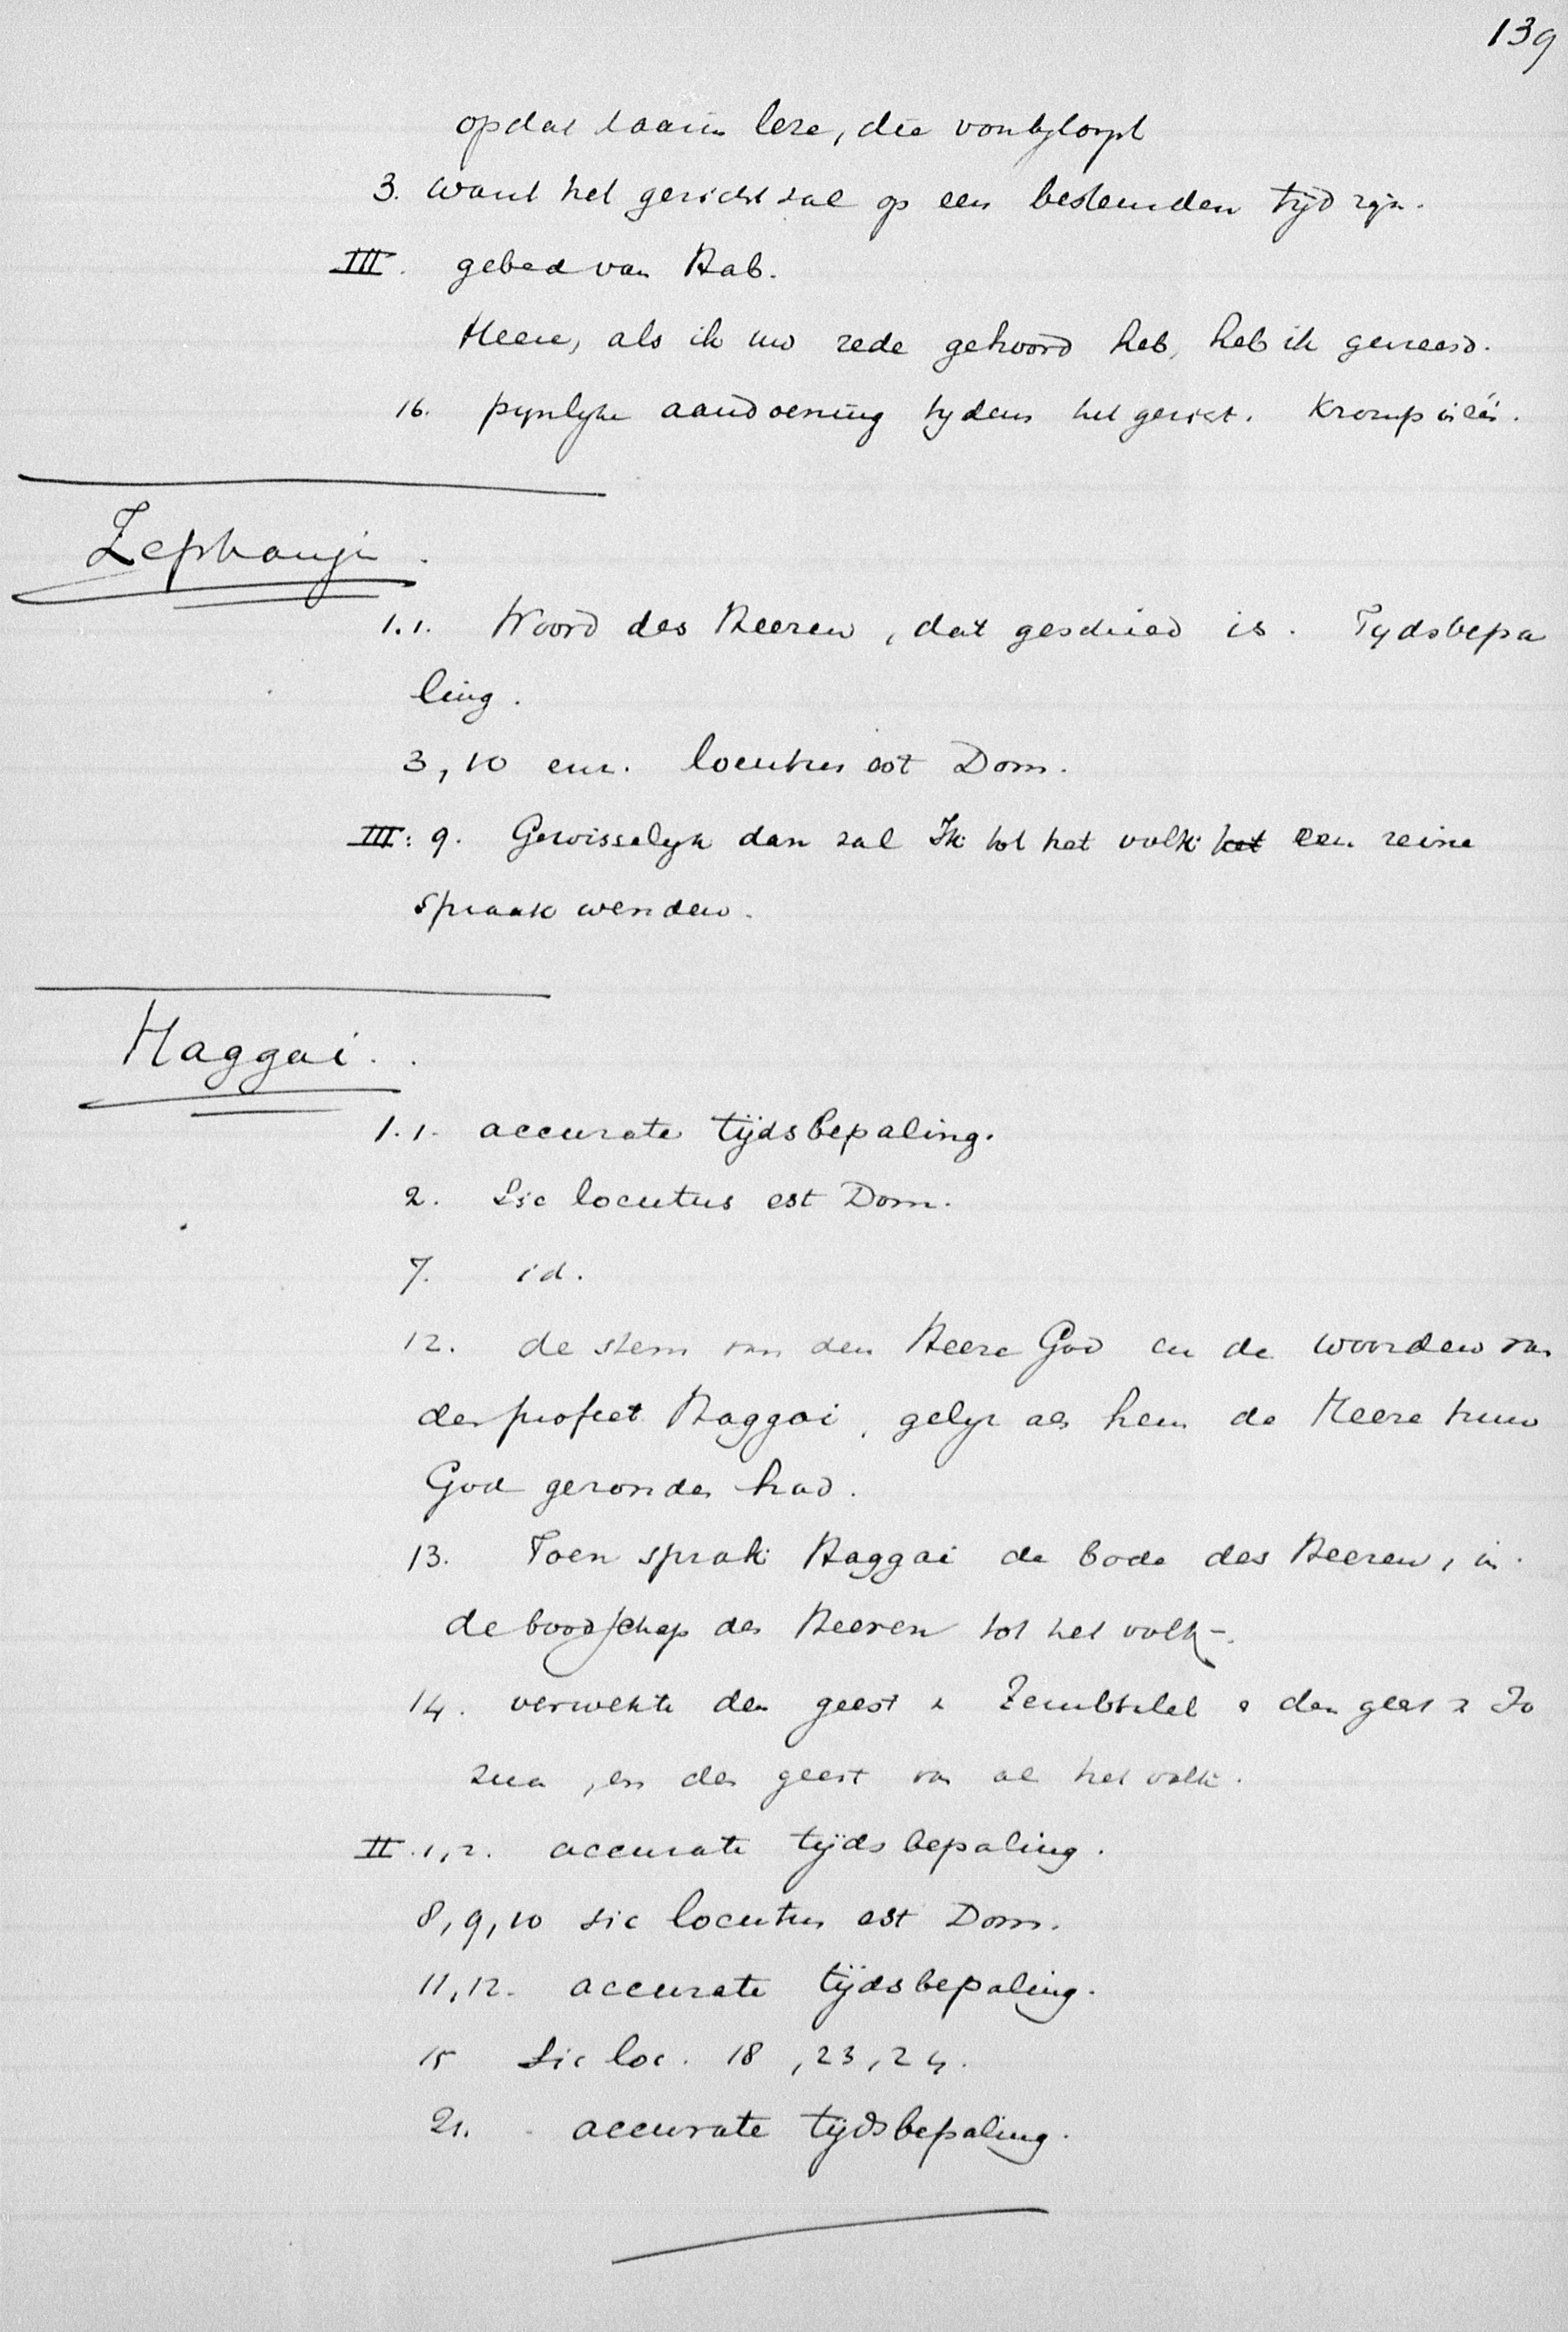 139
opdat daarin leze, die voorbyloopt
3. want het gezicht zal op een bestemden tijd zijn.
III. gebed van Hab.
Heere, als ik uw rede gehoord heb, heb ik gevreesd.
16. pijnlyke aandoening tydens het gezicht. Kromp inéén.
Zephanja.
1.1. Woord des Heeren, dat geschied is. Tydsbepa
ling.
3, 10 locutus est Dom.
III: 9. Gewisselyk dan zal Ik tot het volk het een reine
spraak wenden.
Haggai.
1.1. accurate tijdsbepaling.
2. Sic locutus est Dom.
7. id.
12. de stem van den Heere God en de woorden van
den profeet Haggai, gelyk als hem de Heere hun
God gezonden had.
13. Toen sprak Haggai de bode des Heeren, in
de boodschap des Heeren tot het volk -.
14. verwekte den geest v Zerubbabel e den geest v Jo
zua, en den geest van al het volk.
II. 1, 2. accurate tijdsbepaling.
8, 9, 10 sic locutus est Dom.
11, 12. accurate tijdsbepaling.
15 Sic loc. 18, 23, 24.
21. accurate tijdsbepaling.